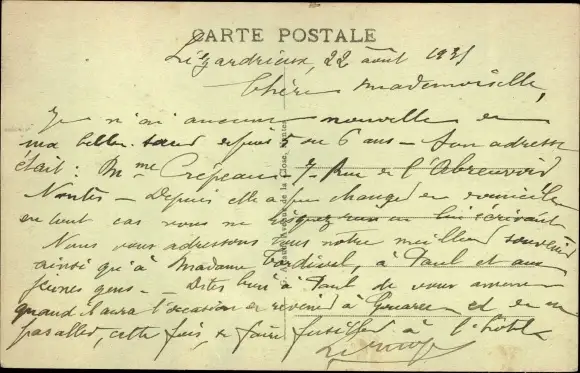 CARTE POSTALE
Lézardrieux, 22 août 1931
Chère Mademoiselle,
Je n'ai aucune nouvelle de
ma belle-sœur depuis 5 ou 6 ans - Son adresse
était : Mme Crépeau 7 Rue de l'Abreuvoir
Nantes - Depuis elle a pu changer de domicile
en tout cas vous ne risquez rien en lui écrivant
Nous vous adressons tous notre meilleur souvenir
ainsi qu'à Madame Tardivel, à Paul et aux
jeunes gens - Dites bien à Paul de vous amener
quand il aura l'occasion de revenir à et de ne
pas aller, cette fois, se faire fusiller à l'hôtel